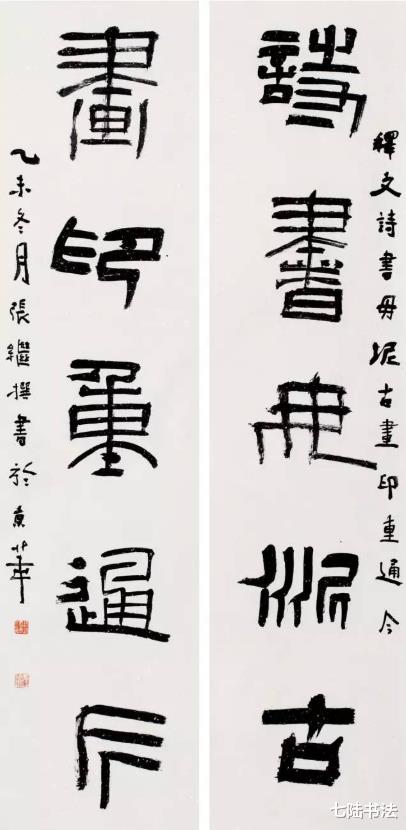 釋文詩書毋泥古畫印重通今
詩書毋泥古
畫印重通今
乙未冬月張繼撰書於京華
七陆书法